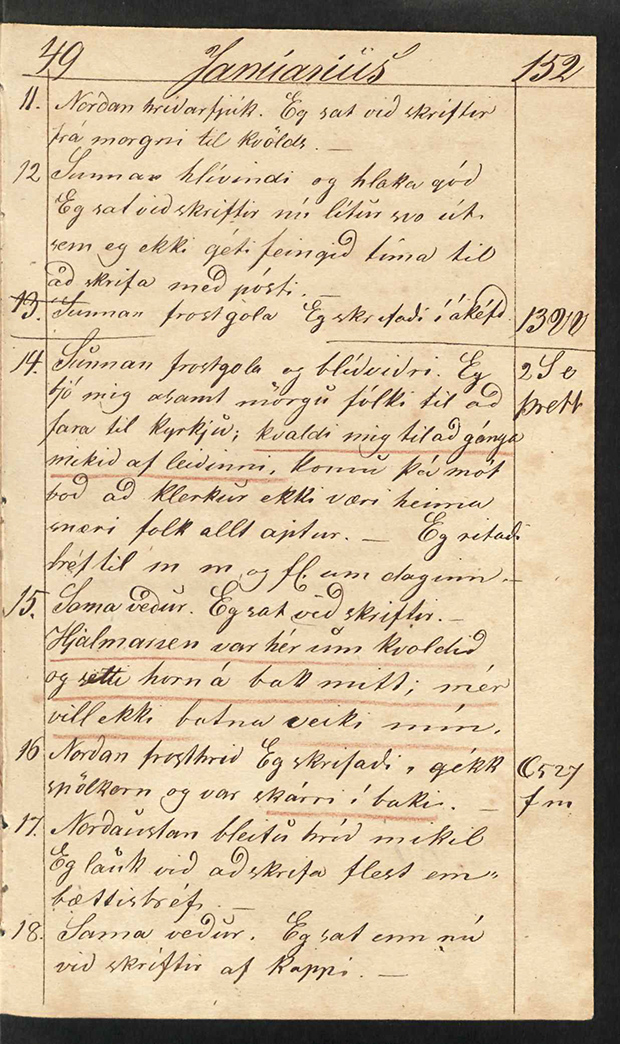 49 Januarius 152
11. Nordan hrídarfjúk. Eg sat við skriftir
frá morgni til kvölds. —
12 Sunnan hlívindi og hlaka gód
Eg sat vid skriftir nú lítur svo út
sem eg ekki géti feingid tíma til
að skrifa med pósti. —
13. Sunnan frostgola Eg skrifadi í ákéfd. 13 VV
14. Sunnan frostgola og blídvidri. Eg 2 S e
bjó mig ásamt mörgu fólki til ad þrett
fara til kyrkju; kvaldi mig til ad gánga
mikid af leidinni, komu þá mót
bod ad klerkur ekki væri heima
snéri folk allt aptur. — Eg ritadi
bréf til m m og fl. um daginn. —
15. Sama vedur. Eg sat við skriftir. —
Hjalmarsen var hér um kvoldid
og setti horn á bak mitt; mér
vill ekki batna veiki mín.
16 Nordan frosthrid Eg skrifadi, gékk 527
spölkorn og var skárri í baki. — f m
17. Nordaustan bleitu hríd mikil
Eg lauk vid ad skrifa flest em„
bættisbréf. —
18. Sama vedur. Eg sat enn nú
vid skriftir af kappi. —